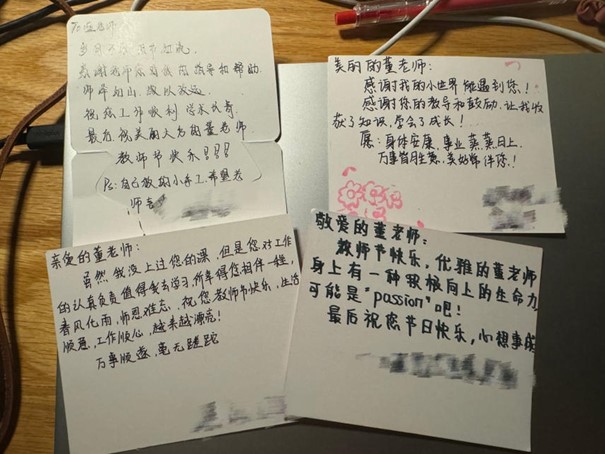 感谢
和帮助
师恩如山
祝您工作顺利
最后祝美丽大方的董老师
教师节快乐!!!
Ps:自己做的小手工,希望老
师
美丽的董老师:
感谢我的小世界能遇到您!
感谢您的教导和鼓励,让我收
获了知识,学会了成长!
愿:身体安康,事业蒸蒸日上,
万事皆胜意,美好常伴您!
亲爱的董老师:
虽然我没上过您的课,但是您对工作
的认真负责值得我去学习,所幸得您相伴一程,
春风化雨,师恩难忘,祝您教师节快乐,生活
顺意,工作顺心,越来越漂亮!
万事顺遂,毫无蹉跎
敬爱的董老师:
教师节快乐,优雅的董老师
身上有一种积极向上的生命力
可能是“passion”吧!
最后祝您节日快乐,心想事成